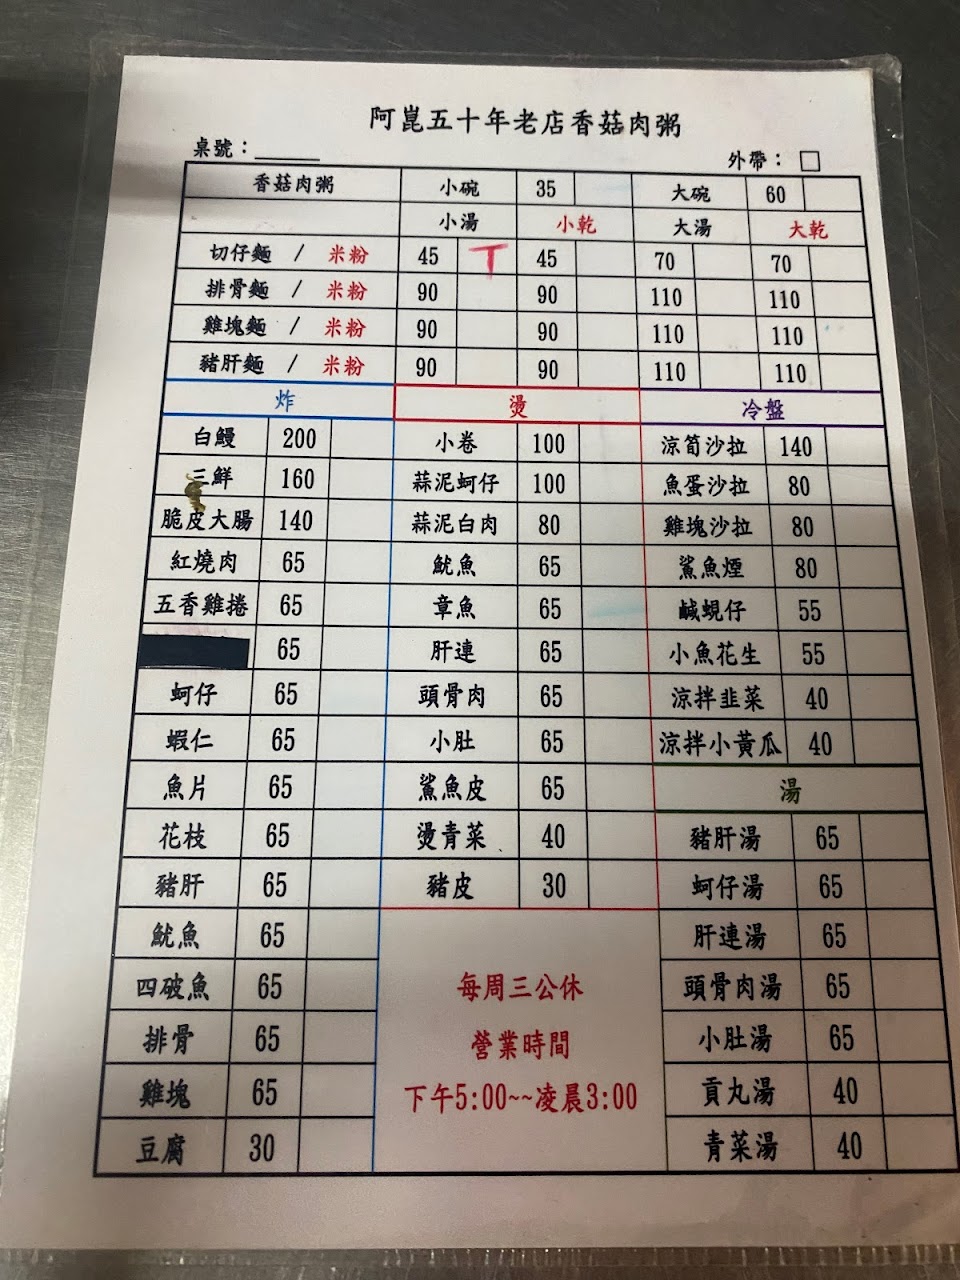 阿崑五十年老店香菇肉粥
桌號： 外帶：
香菇肉粥 小碗 35 大碗 60
小湯 小乾 大湯 大乾
切仔麵 / 米粉 45 T 45 70 70
排骨麵 / 米粉 90 90 110 110
雞塊麵 / 米粉 90 90 110 110
豬肝麵 / 米粉 90 90 110 110
炸 燙 冷盤
白鰻 200 小卷 100 涼筍沙拉 140
三鮮 160 蒜泥蚵仔 100 魚蛋沙拉 80
脆皮大腸 140 蒜泥白肉 80 雞塊沙拉 80
紅燒肉 65 魷魚 65 鯊魚煙 80
五香雞捲 65 章魚 65 鹹蜆仔 55
65 肝連 65 小魚花生 55
蚵仔 65 頭骨肉 65 涼拌韭菜 40
蝦仁 65 小肚 65 涼拌小黃瓜 40
魚片 65 鯊魚皮 65 湯
花枝 65 燙青菜 40 豬肝湯 65
豬肝 65 豬皮 30 蚵仔湯 65
魷魚 65 肝連湯 65
四破魚 65 每周三公休 頭骨肉湯 65
排骨 65 營業時間 小肚湯 65
雞塊 65 下午5:00~~凌晨3:00 貢丸湯 40
豆腐 30 青菜湯 40